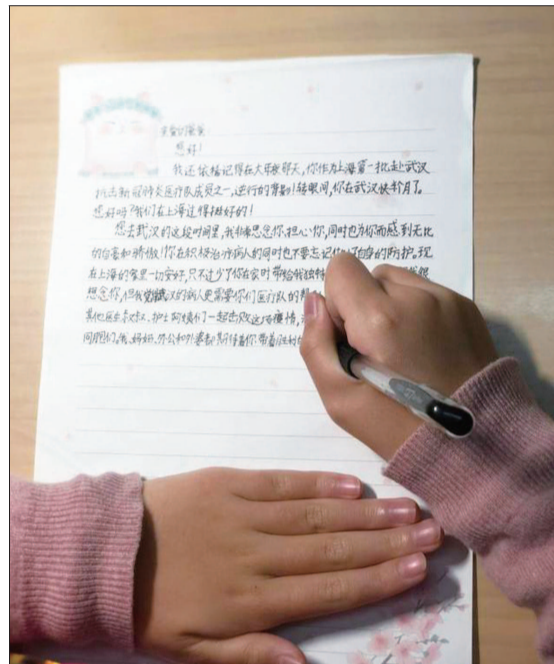 您好!
我还依稀记得在大年初那天,你作为上海第一批赴武汉
抗击新冠肺炎医疗队成员之一,逆行的背影!转眼间,你在武汉快1个月了。
您好吗?我们在上海过得挺好的!
您去武汉的这段时间里,我非常思念你,担心你,同时也为你而感到无比
的自豪和骄傲!你在积极治疗病人的同时也不要忘记自身的防护。现
在上海的家里一切安好,只不过少了你在家时带给我独特
想念你,但我觉得武汉的病人更需要你们医疗队的
其他医生叔叔、护士阿姨们一起击败这场疫情,
同胞们,我、妈妈、外公和外婆都期待着你带着胜利的